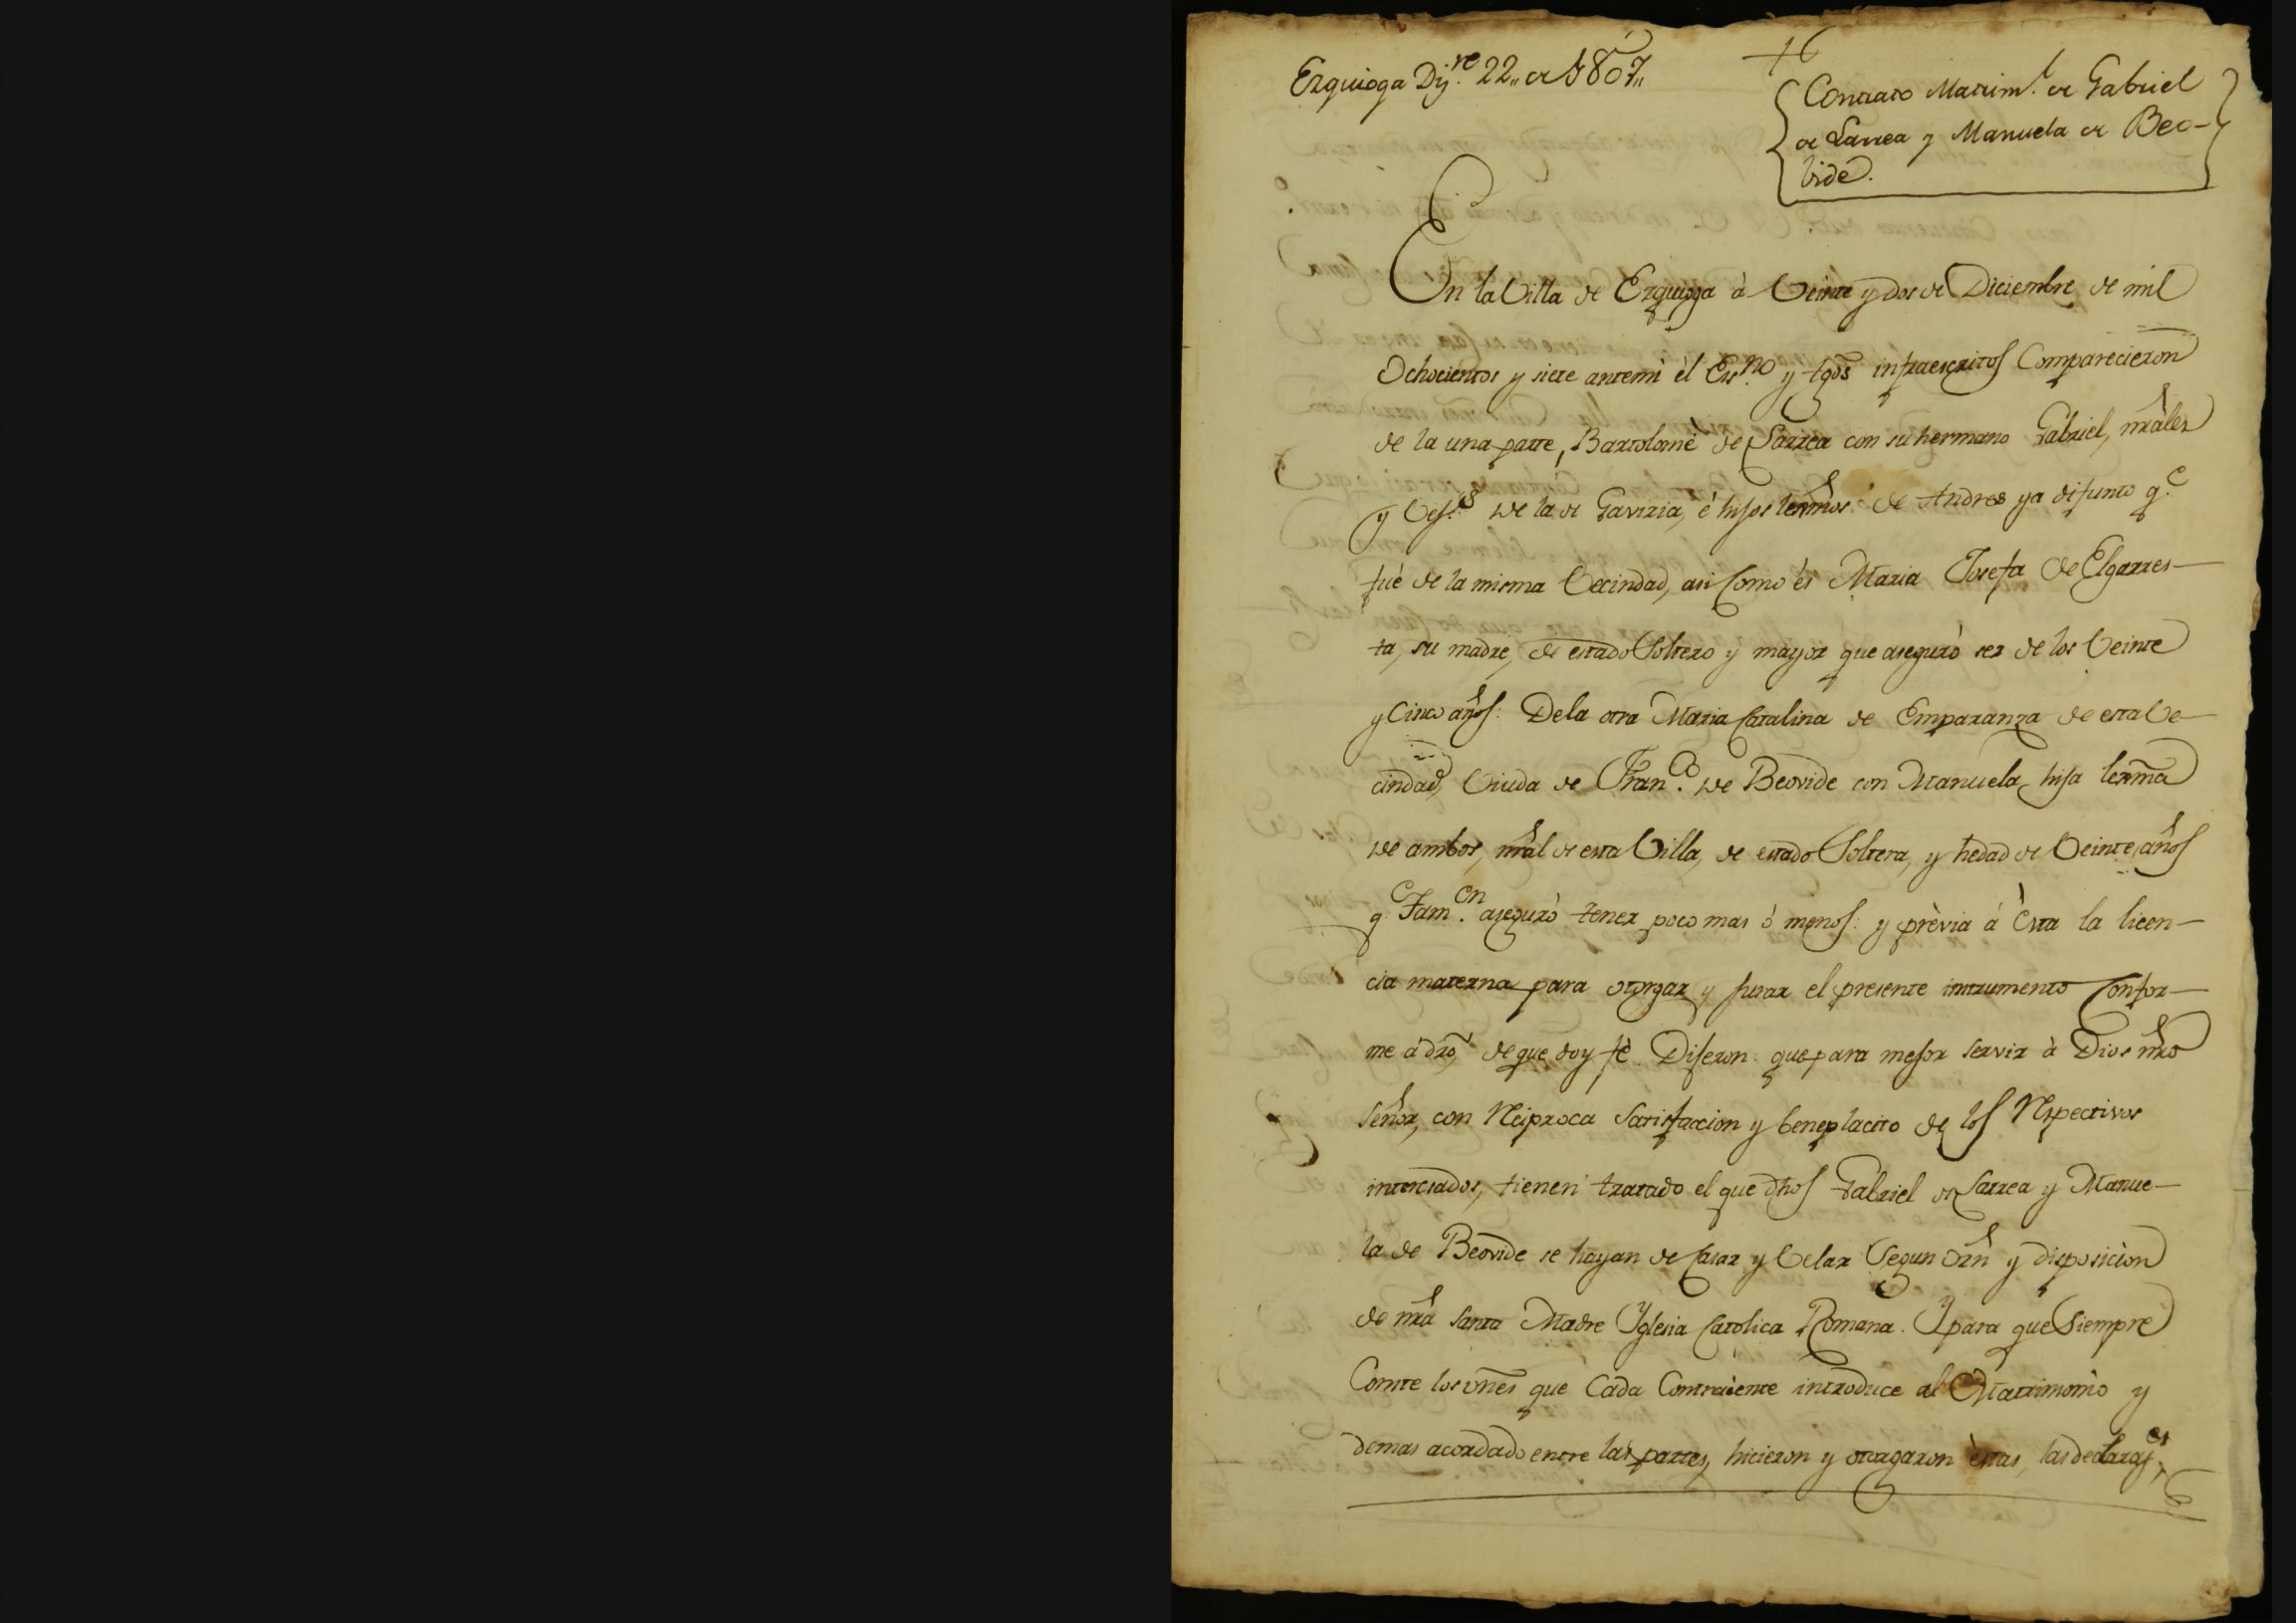 Ezquioga Dij.re 22,, de 1807,,
Contrato Matrim.l de Gabriel
de Larrea y Manuela de Beo-
bide.
En la Villa de Ezquioga à Veinte y dos de Diciembre de mil
Ochocientos y siete antemi èl Ess.no y tgõs infraescritos Comparecieron
de la una parte, Bartolomè de Larrea con su hermano Gabriel, nrãles
y Vez.s de la de Gaviria, é hijos lexmõs de Andres ya difunto q.e
fuè de la misma Vecindad, asi Como és Maria Josefa de Elgarres-
ta, su madre, de estado Soltero y mayor que aseguró ser de los Veinte
y Cinco años: De la otra Maria Catalina de Emparanza de esta Ve-
cindad, Viuda de Fran.co de Beovide con Manuela, hija lexmã
de ambos, nrãl de esta Villa, de estado Soltera, y hedad de Veinte años
q.e Tam.en aseguró tener poco mas ó menos: y prèvia á Esta la licen-
cia materna para otorgar y jurar el presente instrumento Confor-
me á drõ, de que doy fè. Dijeron: que para mejor servir à Dios nrõ
Señor, con Reciproca Satisfaccion y beneplacito de los Respectivos
interesados, tienen tratado el que dhos Gabriel de Larrea y Manue-
la de Beovide se hayan de Casar y Velar Segun Orñ y disposicion
de nrã Santa Madre Yglesia Catolica Romana. Y para que Siempre
Conste los vnẽs que Cada Contraiente introduce al Matrimonio y
demas acordado entre las partes, hicieron y otorgaron èstas, las declaraz.es